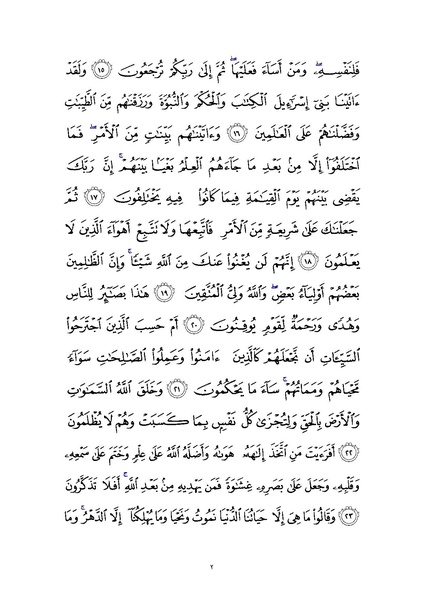 فَلِنَفْسِهِۦۖ وَمَنْ أَسَآءَ فَعَلَيْهَاۖ ثُمَّ إِلَىٰ رَبِّكُمْ تُرْجَعُونَ ١٥ وَلَقَدْ
ءَاتَيْنَا بَنِىٓ إِسْرَٰٓءِيلَ ٱلْكِتَٰبَ وَٱلْحُكْمَ وَٱلنُّبُوَّةَ وَرَزَقْنَٰهُم مِّنَ ٱلطَّيِّبَٰتِ
وَفَضَّلْنَٰهُمْ عَلَى ٱلْعَٰلَمِينَ ١٦ وَءَاتَيْنَٰهُم بَيِّنَٰتٍ مِّنَ ٱلْأَمْرِۖ فَمَا
ٱخْتَلَفُوٓا۟ إِلَّا مِنۢ بَعْدِ مَا جَآءَهُمُ ٱلْعِلْمُ بَغْيًۢا بَيْنَهُمْۚ إِنَّ رَبَّكَ
يَقْضِى بَيْنَهُمْ يَوْمَ ٱلْقِيَٰمَةِ فِيمَا كَانُوا۟ فِيهِ يَخْتَلِفُونَ ١٧ ثُمَّ
جَعَلْنَٰكَ عَلَىٰ شَرِيعَةٍ مِّنَ ٱلْأَمْرِ فَٱتَّبِعْهَا وَلَا تَتَّبِعْ أَهْوَآءَ ٱلَّذِينَ لَا
يَعْلَمُونَ ١٨ إِنَّهُمْ لَن يُغْنُوا۟ عَنكَ مِنَ ٱللَّهِ شَيْـًٔاۚ وَإِنَّ ٱلظَّٰلِمِينَ
بَعْضُهُمْ أَوْلِيَآءُ بَعْضٍۖ وَٱللَّهُ وَلِىُّ ٱلْمُتَّقِينَ ١٩ هَٰذَا بَصَٰٓئِرُ لِلنَّاسِ
وَهُدًى وَرَحْمَةٌ لِّقَوْمٍ يُوقِنُونَ ٢٠ أَمْ حَسِبَ ٱلَّذِينَ ٱجْتَرَحُوا۟
ٱلسَّيِّـَٔاتِ أَن نَّجْعَلَهُمْ كَٱلَّذِينَ ءَامَنُوا۟ وَعَمِلُوا۟ ٱلصَّٰلِحَٰتِ سَوَآءً
مَّحْيَاهُمْ وَمَمَاتُهُمْۚ سَآءَ مَا يَحْكُمُونَ ٢١ وَخَلَقَ ٱللَّهُ ٱلسَّمَٰوَٰتِ
وَٱلْأَرْضَ بِٱلْحَقِّ وَلِتُجْزَىٰ كُلُّ نَفْسٍۭ بِمَا كَسَبَتْ وَهُمْ لَا يُظْلَمُونَ
٢٢ أَفَرَءَيْتَ مَنِ ٱتَّخَذَ إِلَٰهَهُۥ هَوَىٰهُ وَأَضَلَّهُ ٱللَّهُ عَلَىٰ عِلْمٍ وَخَتَمَ عَلَىٰ سَمْعِهِۦ
وَقَلْبِهِۦ وَجَعَلَ عَلَىٰ بَصَرِهِۦ غِشَٰوَةً فَمَن يَهْدِيهِ مِنۢ بَعْدِ ٱللَّهِۚ أَفَلَا تَذَكَّرُونَ
٢٣ وَقَالُوا۟ مَا هِىَ إِلَّا حَيَاتُنَا ٱلدُّنْيَا نَمُوتُ وَنَحْيَا وَمَا يُهْلِكُنَآ إِلَّا ٱلدَّهْرُۚ وَمَا
٢